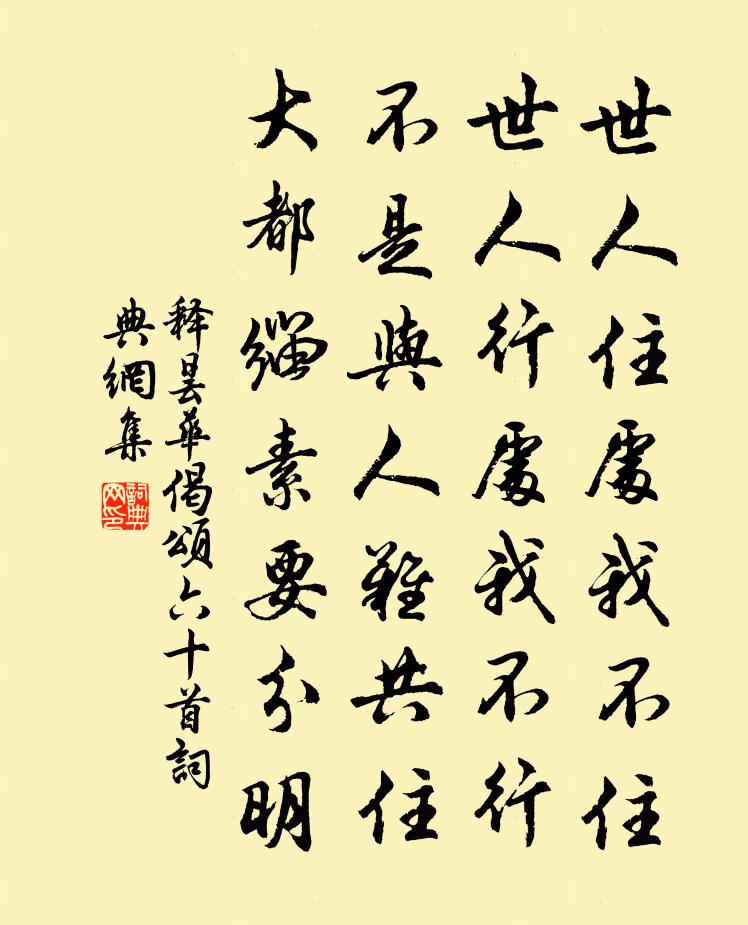 世人住處我不住
世人行處我不行
不是與人難共住
大都緇素要分明
释曇華偈頌六十首詞
典網集
詞典
网印